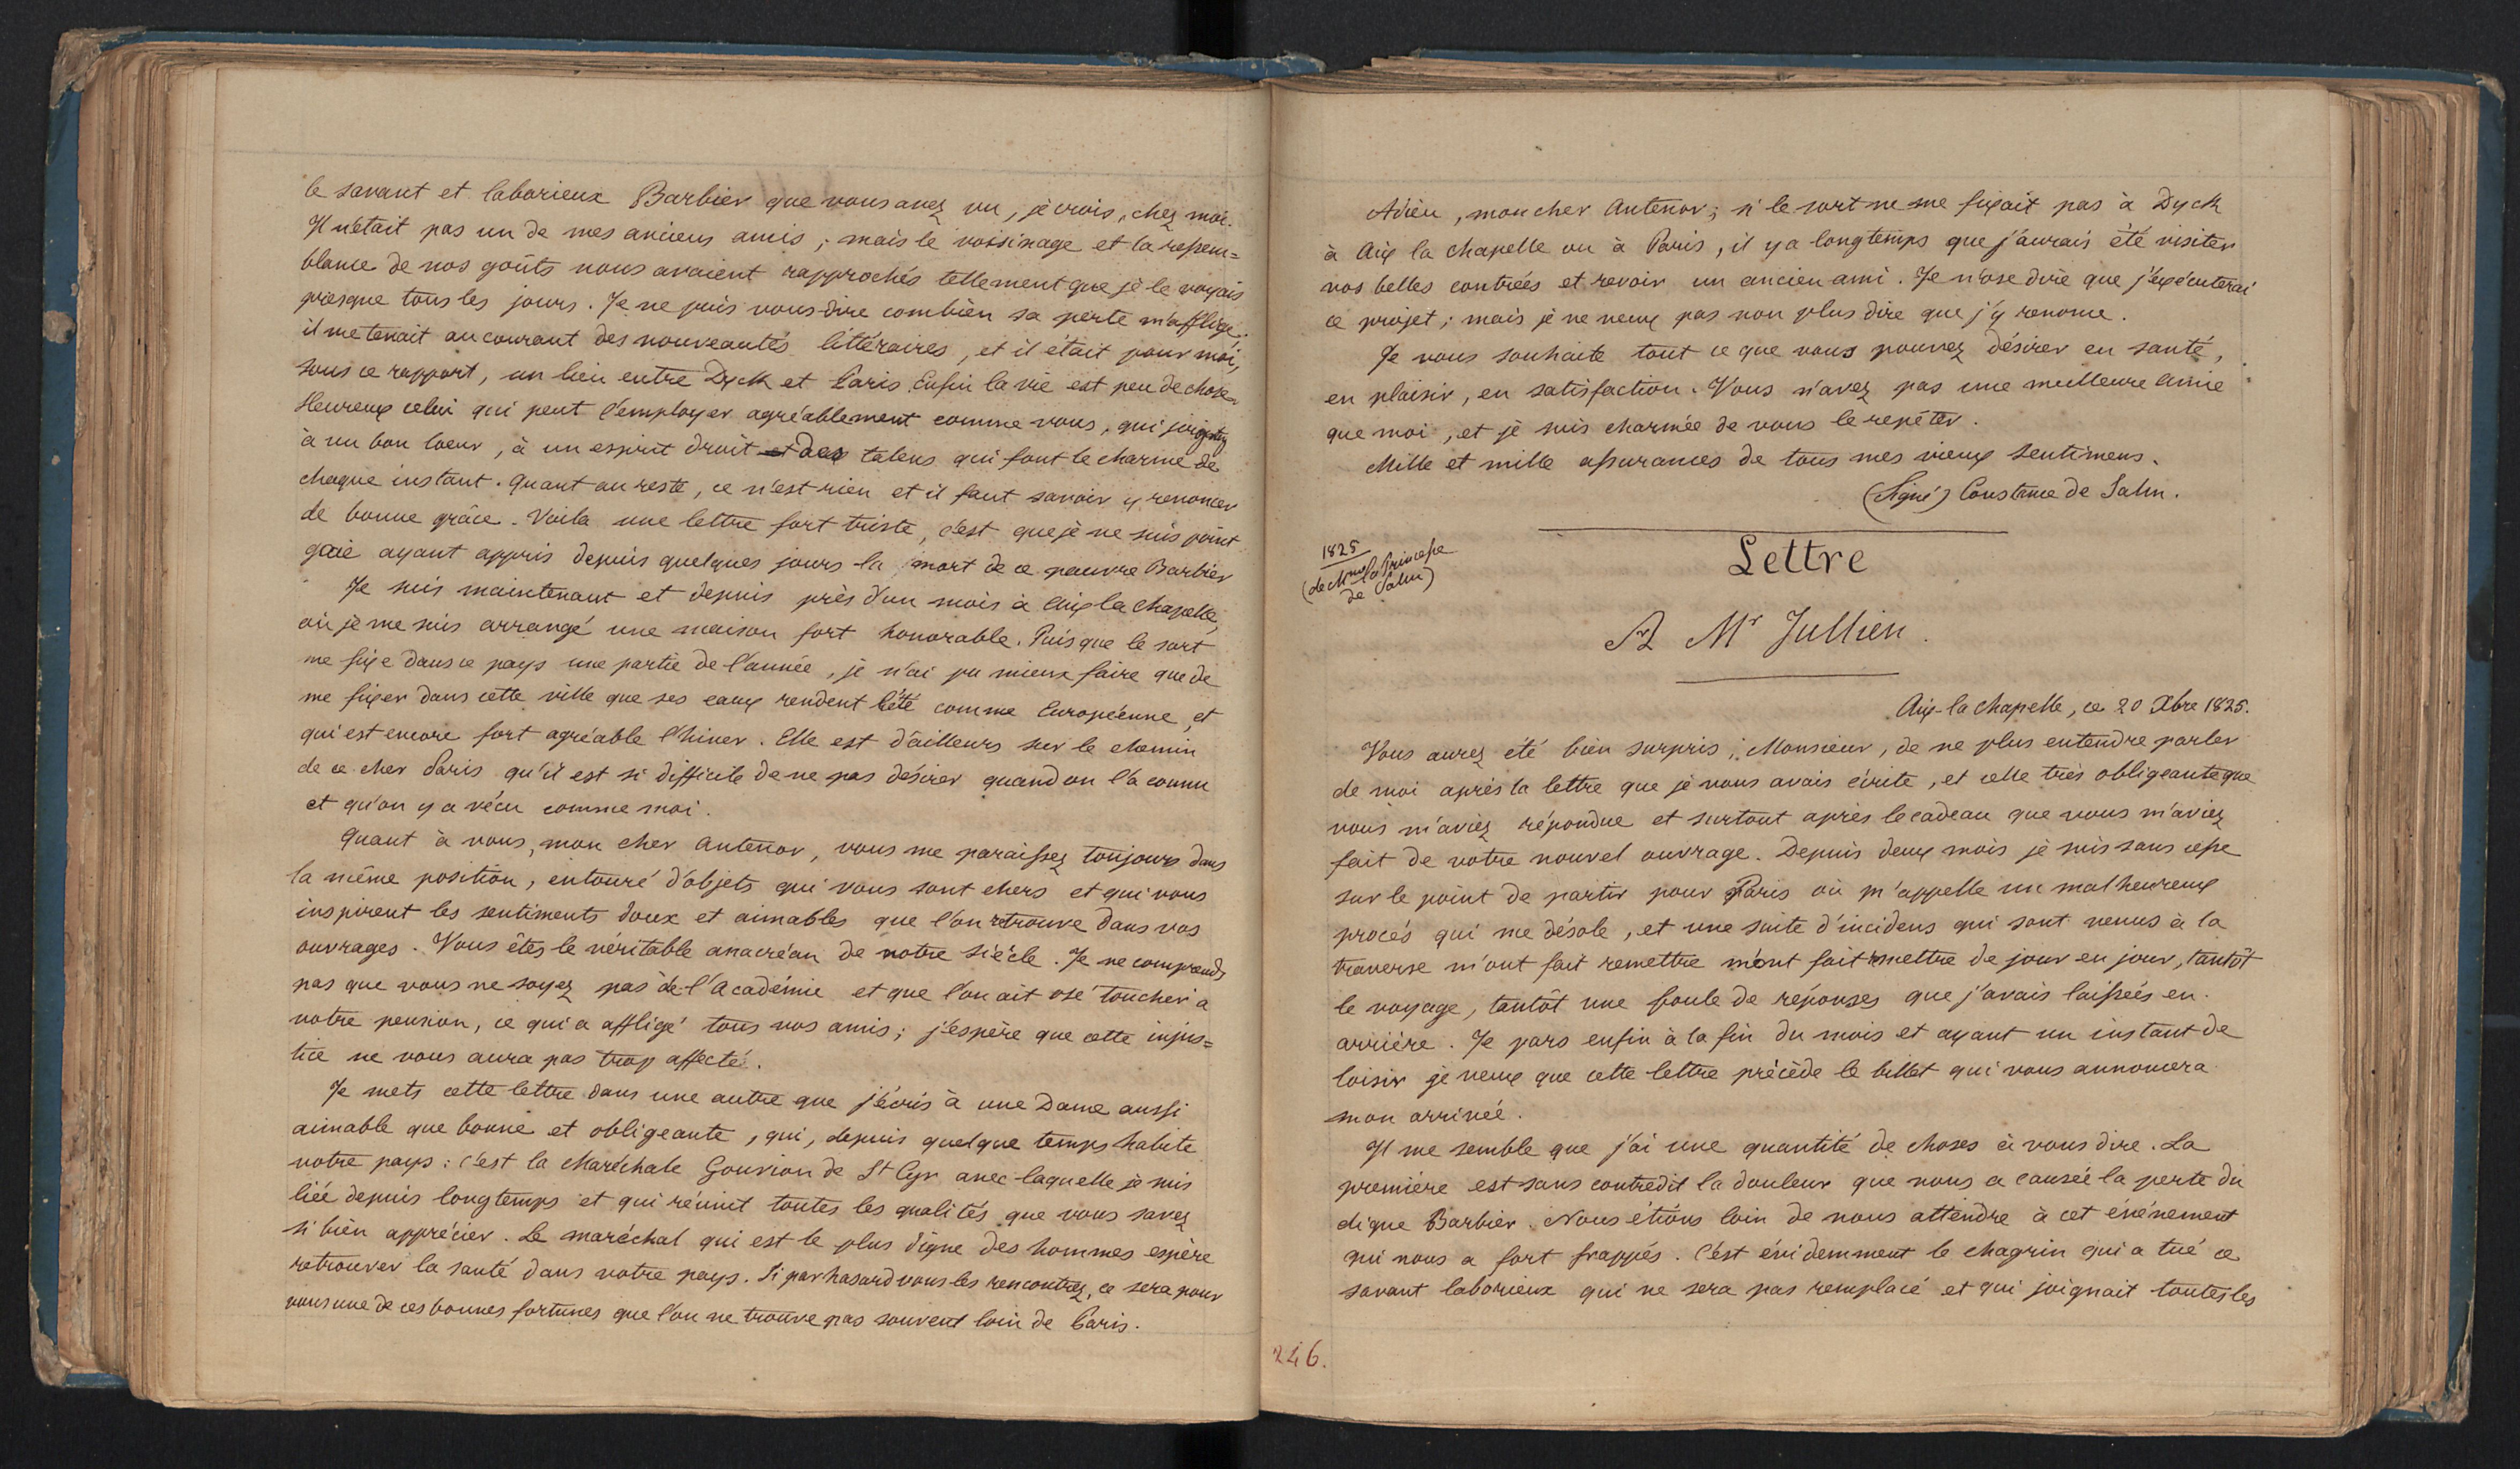 le savant et laborieux Barbier que vous avez vu, je crois, chez moi.
Il n'était pas un de mes anciens amis ; mais le voisinage et la ressem=
blance de nos goûts nous avaient rapprochés tellement que je le voyais
presque tous les jours. Je ne puis vous dire combien sa perte m'afflige.
il me tenait au courant des nouveautés littéraires, et il était pour moi,
sous ce rapport, un lien entre Dyck et Paris. Enfin la vie est peu de chose.
Heureux celui qui peut l'employer agréablement comme vous, qui joignez
à un bon coeur, à un esprit droit et des talens qui font le charme de
chaque instant. Quant au reste, ce n'est rien et il faut savoir y renoncer
de bonne grâce. Voila une lettre fort triste, c'est que je ne suis point
gaie ayant appris depuis quelques jours la mort de ce pauvre Barbier
Je suis maintenant et depuis près d'un mois à Aix la Chapelle,
où je me suis arrangé une maison fort honorable. Puisque le sort
me fixe dans ce pays une partie de l'année, je n'ai pu mieux faire que de
me fixer dans cette ville que ses eaux rendent l'été comme Européenne, et
qui est encore fort agréable l'hiver. Elle est d'ailleurs sur le chemin
de ce cher Paris qu'il est si difficile de ne pas désirer quand on l'a connu
et qu'on y a vécu comme moi.
Quant à vous, mon cher Antenor, vous me paraissez toujours dans
la même position, entouré d'objets qui vous sont chers et qui vous
inspirent les sentiments doux et aimables que l'on retrouve dans vos
ouvrages. Vous êtes le véritable anacréon de notre siècle. Je ne comprends
pas que vous ne soyez pas de l'Académie et que l'on ait osé toucher a
votre pension, ce qui a affligé tous vos amis ; j'espère que cette injus=
tice ne vous aura pas trop affecté.
Je mets cette lettre dans une autre que j'écris à une Dame aussi
aimable que bonne et obligeante, qui, depuis quelque temps habite
votre pays : c'est la Maréchale Gouvion de St Cyr avec laquelle je suis
liée depuis longtemps et qui réunit toutes les qualités que vous savez
si bien apprécier. Le maréchal qui est le plus digne des hommes espère
retrouver la santé dans votre pays. Si par hasard vous les rencontrez, ce sera pour
vous une de ces bonnes fortunes que l'on ne trouve pas souvent loin de Paris.
Adieu, mon cher Antenor ; si le sort ne me fixait pas à Dyck
à Aix la Chapelle ou à Paris, il y a longtemps que j'aurais été visiter
vos belles contrées et revoir un ancien ami. Je n'ose dire que j'exécuterai
ce projet ; mais je ne veux pas non plus dire que j'y renonce.
Je vous souhaite tout ce que vous pouvez désirer en santé,
en plaisir, en satisfaction. Vous n'avez pas une meilleure amie
que moi, et je suis charmée de vous le repéter.
Mille et mille assurances de tous mes vieux sentimens.
(Signé) Constance de Salm.
1825
(de Mme la Princesse
de Salm)
Lettre
A Mr Jullien.
Aix-la Chapelle, ce 20 Xbre 1825.
Vous aurez été bien surpris, Monsieur, de ne plus entendre parler
de moi après la lettre que je vous avais écrite, et celle très obligeante que
vous m'aviez répondue et surtout après le cadeau que vous m'aviez
fait de votre nouvel ouvrage. Depuis deux mois je suis sans cesse
sur le point de partir pour Paris où m'appelle un malheureux
procès qui me désole, et une suite d'incidens qui sont venus à la
traverse m'ont fait remettre m'ont fait remettre de jour en jour, tantôt
le voyage, tantôt une foule de réponses que j'avais laissées en
arrière. Je pars enfin à la fin du mois et ayant un instant de
loisir je veux que cette lettre précède le billet qui vous annoncera
mon arrivée.
Il me semble que j'ai une quantité de choses à vous dire. La
première est sans contredit la douleur que nous a causée la perte du
digne Barbier. Nous étions loin de nous attendre à cet événement
qui nous a fort frappés. C'est évidemment le chagrin qui a tué ce
savant laborieux qui ne sera pas remplacé et qui joignait toutes les
246.